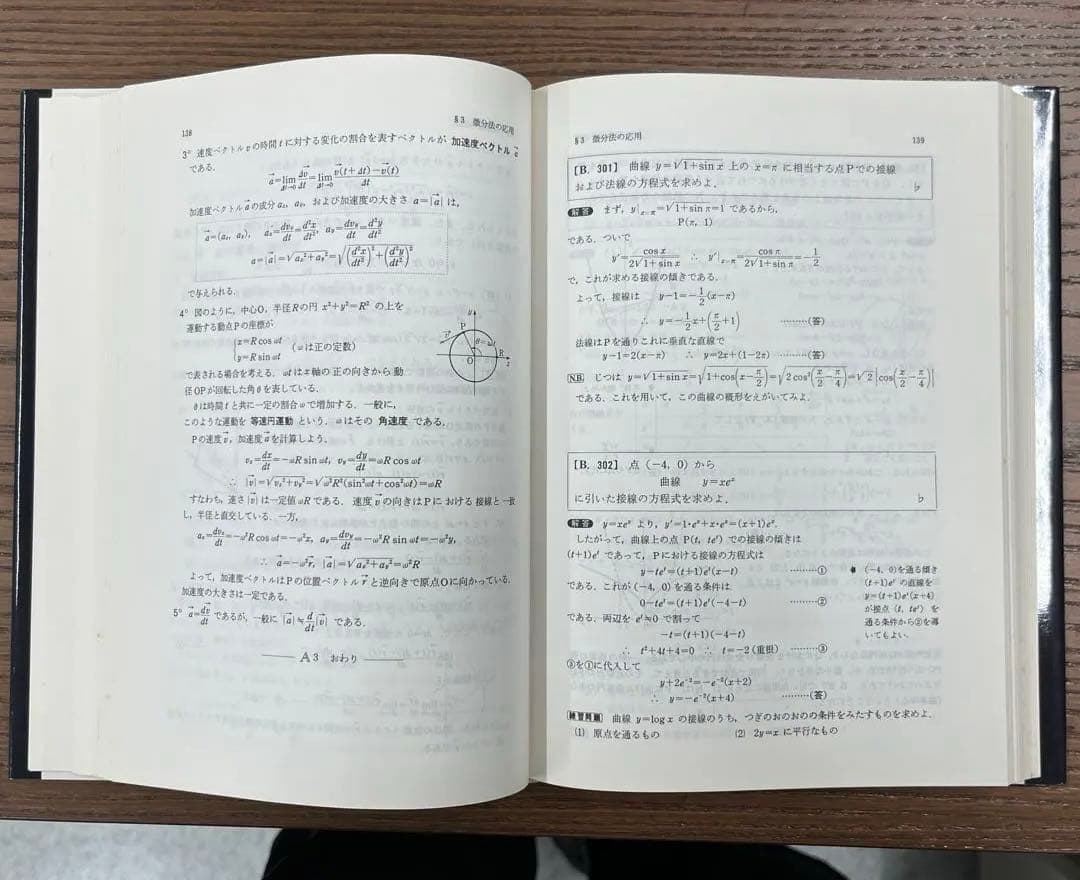 138
§3 微分法の応用
3° 速度ベクトル v の時間 t に対する変化の割合を表すベクトルが 加速度ベクトル a
である.
a=lim Δv/Δt=lim (v(t+Δt)-v(t))/Δt
Δt→0 Δt→0
加速度ベクトル a の成分 aₓ, aᵧ, および加速度の大きさ a=|a| は,
a=(aₓ, aᵧ), aₓ=dvₓ/dt=d²x/dt², aᵧ=dvᵧ/dt=d²y/dt²
a=|a|=√(aₓ²+aᵧ²)=√((d²x/dt²)²+(d²y/dt²)²)
で与えられる.
4° 図のように, 中心O, 半径Rの円 x²+y²=R² の上を
運動する動点Pの座標が
{x=R cos ωt
y=R sin ωt (ωは正の定数)
で表される場合を考える. ωt は x 軸の正の向きから動
径OPが回転した角 θ を表している.
θは時間 t と共に一定の割合 ω で増加する. 一般に,
このような運動を 等速円運動 という. ωはその 角速度 である.
Pの速度 v, 加速度 a を計算しよう.
vₓ=dx/dt=-ωR sin ωt, vᵧ=dy/dt=ωR cos ωt
∴ |v|=√(vₓ²+vᵧ²)=√(ω²R²(sin²ωt+cos²ωt))=ωR
すなわち, 速さ |v| は一定値 ωR である. 速度 v の向きはPにおける 接線と一致
し, 半径と直交している. 一方,
aₓ=dvₓ/dt=-ω²R cos ωt=-ω²x, aᵧ=dvᵧ/dt=-ω²R sin ωt=-ω²y,
∴ a=-ω²r, |a|=√(aₓ²+aᵧ²)=ω²R
よって, 加速度ベクトルはPの位置ベクトル r と逆向きで原点Oに向かっている.
加速度の大きさは一定である.
5° a=dv/dt であるが, 一般に |a|≒d/dt|v| である.
A3 おわり
y
P
v
θ=ωt
R
O
x
§3 微分法の応用
139
[B. 301] 曲線 y=√(1+sin x) 上の x=π に相当する点Pでの接線
および法線の方程式を求めよ. ♭
解答 まず, y|ₓ₌π=√(1+sin π)=1 であるから,
P(π, 1)
である. ついで
y'=cos x/(2√(1+sin x)) ∴ y'|ₓ₌π=cos π/(2√(1+sin π))=-1/2
で, これが求める接線の傾きである.
よって, 接線は y-1=-1/2(x-π)
∴ y=-1/2x+(π/2+1) ………(答)
法線はPを通りこれに垂直な直線で
y-1=2(x-π) ∴ y=2x+(1-2π) ………(答)
NB. じつは y=√(1+sin x)=√(1+cos(x-π/2))=√(2cos²(x/2-π/4))=√2|cos(x/2-π/4)|
である. これを用いて, この曲線の概形をえがいてみよ.
[B. 302] 点 (-4, 0) から
曲線 y=xeˣ
に引いた接線の方程式を求めよ. ♭
解答 y=xeˣ より, y'=1・eˣ+x・eˣ=(x+1)eˣ.
したがって, 曲線上の点 P(t, teᵗ) での接線の傾きは
(t+1)eᵗ であって, Pにおける接線の方程式は
y-teᵗ=(t+1)eᵗ(x-t) ………①
である. これが (-4, 0) を通る条件は
0-teᵗ=(t+1)eᵗ(-4-t) ………②
である. 両辺を eᵗ≒0 で割って
-t=(t+1)(-4-t)
∴ t²+4t+4=0 ∴ t=-2(重根) ………③
③を①に代入して
y+2e⁻²=-e⁻²(x+2)
∴ y=-e⁻²(x+4) ………(答)
(-4, 0)を通る傾き
(t+1)eᵗ の直線を
y=(t+1)eᵗ(x+4)
が接点 (t, teᵗ) を
通る条件から②を導
いてもよい.
練習問題 曲線 y=log x の接線のうち, つぎのおのおのの条件をみたすものを求めよ.
(1) 原点を通るもの (2) 2y=x に平行なもの